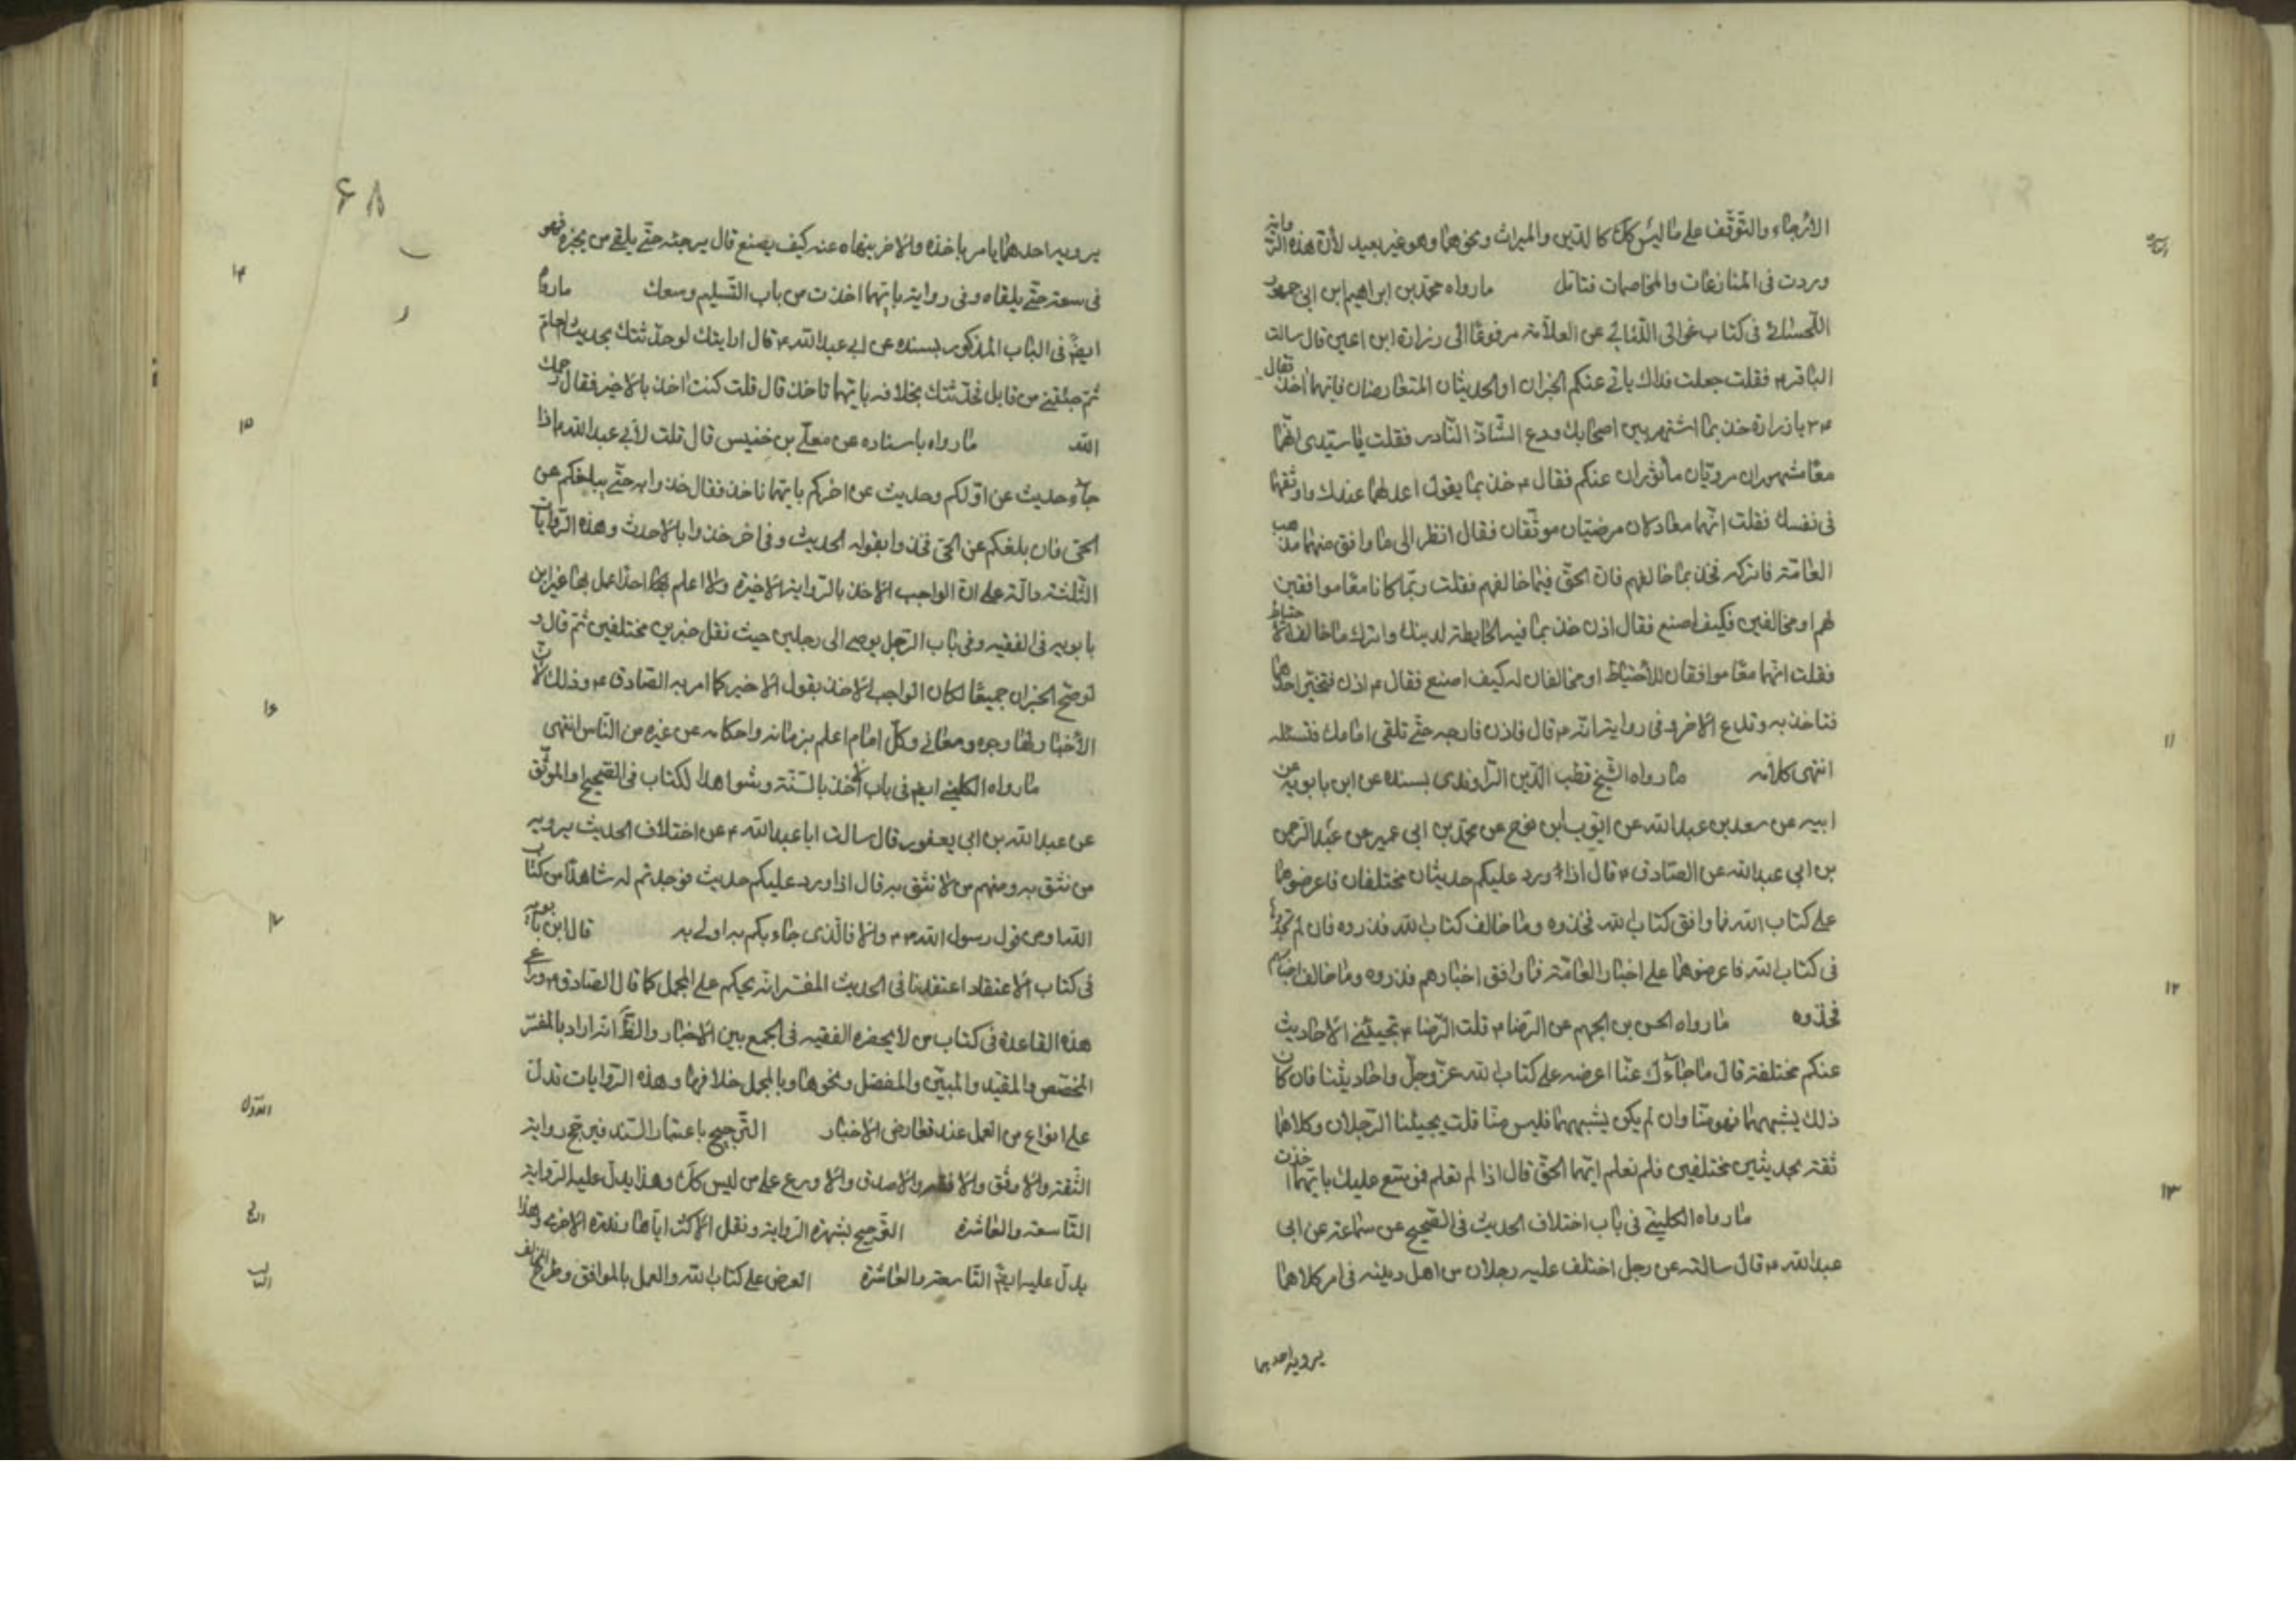 الارجاء والتوقف على ما ليس كك كالدين والميراث ونحوهما وهو غير بعيد لأن هذه الرواية
وردت فى المنازعات والمخاصمات فتامل ما رواه محمد بن ابراهيم ابن ابى جمهور
اللحسائى فى كتاب غوالى اللئالى عن العلامة مرفوعا الى زرارة ابن اعين قال سالت
الباقر ع فقلت جعلت فداك ياتى عنكم الخبران او الحديثان المتعارضان فبايهما اخذ فقال
ع يا زرارة خذ بما اشتهر بين اصحابك ودع الشاذ النادر فقلت يا سيدى انهما
معا مشهوران مرويان مأثوران عنكم فقال ع خذ بما يقول اعدلهما عندك واوثقهما
فى نفسك فقلت انهما معا عدلان مرضيان موثقان فقال انظر الى ما وافق منهما مذهب
العامة فاتركه فخذ بما خالفهم فان الحق فيما خالفهم فقلت ربما كانا معا موافقين
لهم او مخالفين فكيف اصنع فقال اذن خذ بما فيه الحايطة لدينك واترك ما خالف الاحتياط
فقلت انهما معا موافقان للأحتياط او مخالفان له كيف اصنع فقال ع اذن فتخير احدهما
فتاخذ به وتدع الاخر وفى رواية انه ع قال فاذن فارجه حتى تلقى امامك فتسئله
انتهى كلامه ما رواه الشيخ قطب الدين الراوندى بسنده عن ابن بابويه عن
ابيه عن سعد بن عبد الله عن ايوب بن نوح عن محمد بن ابى عمير عن عبد الرحمن
بن ابى عبد الله عن الصادق ع قال اذا ورد عليكم حديثان مختلفان فاعرضوهما
على كتاب الله فما وافق كتاب الله فخذوه وما خالف كتاب الله فذروه فان لم تجدوا
فى كتاب الله فاعرضوهما على اخبار العامة فما وافق اخبارهم فذروه وما خالف اخبارهم
فخذوه ما رواه الحسن بن الجهم عن الرضا ع قلت للرضا ع تجيئنى الاحاديث
عنكم مختلفة قال ما جاءك عنا اعرضه على كتاب الله عز وجل واحاديثنا فان كان
ذلك يشبههما فهو منا وان لم يكن يشبههما فليس منا قلت يجيئنا الرجلان وكلاهما
ثقة بحديثين مختلفين فلم نعلم ايهما الحق قال اذا لم تعلم فموسع عليك بايهما اخذت
ما رواه الكلينى فى باب اختلاف الحديث فى الصحيح عن سماعة عن ابى
عبد الله ع قال سالته عن رجل اختلف عليه رجلان من اهل دينه فى امر كلاهما
يرويه احدهما
۱۱
۱۲
۱۳
۶۸
يرويه احدهما يامر باخذه والاخر ينهاه عنه كيف يصنع قال يرجئه حتى يلقى من يخبره فهو
فى سعة حتى يلقاه وفى رواية بايهما اخذت من باب التسليم وسعك ما رواه
ايضا فى الباب المذكور بسنده عن ابى عبد الله ع قال ارايتك لو حدثتك بحديث العام
ثم جئتنى من قابل فحدثتك بخلافه بايهما تاخذ قال قلت كنت اخذ بالاخير فقال رحمك
الله ما رواه باسناده عن معلى بن خنيس قال قلت لأبى عبد الله ع اذا
جاء حديث عن اولكم وحديث عن اخركم بايهما ناخذ فقال خذوا به حتى يبلغكم عن
الحى فان بلغكم عن الحى فخذوا بقوله الحديث وفى اخر خذوا بالاحدث وهذه الروايات
الثلثة دالة على ان الواجب الاخذ بالرواية الاخيرة ولا اعلم احدا عمل بها غير ابن
بابويه فى الفقيه وفى باب الرجل يوصى الى رجلين حيث نقل خبرين مختلفين ثم قال و
لو صح الخبران جميعا لكان الواجب الاخذ بقول الاخير كما امر به الصادق ع وذلك لان
الأخبار لها وجوه ومعانى وكل امام اعلم بزمانه واحكامه عن غيره من الناس انتهى
ما رواه الكلينى ايضا فى باب الاخذ بالسنة وشواهد الكتاب فى الصحيح او الموثق
عن عبد الله بن ابى يعفور قال سالت ابا عبد الله ع عن اختلاف الحديث يرويه
من نثق به ومنهم من لا نثق به قال اذا ورد عليكم حديث فوجدتم له شاهدا من كتاب
الله او من قول رسول الله ص والا فالذى جاءكم به اولى به قال ابن بابويه
فى كتاب الاعتقاد اعتقادنا فى الحديث المفسر انه يحكم على المجمل كما قال الصادق ع
هذه القاعدة فى كتاب من لا يحضره الفقيه فى الجمع بين الاخبار والظ انه اراد بالمفسر
المخصص والمقيد والمبين والمفصل ونحوها وبالمجمل خلافها وهذه الروايات تدل
على انواع من العمل عند تعارض الاخبار الترجيح باعتبار السند فيرجح رواية
الثقة والاوثق والافقه والاصدق والاورع على من ليس كك وهذا يدل عليه الرواية
التاسعة والعاشرة الترجيح بشهرة الرواية ونقل الاكثر اياها وندرة الاخرى وهذا
يدل عليه ايضا التاسعة والعاشرة العرض على كتاب الله والعمل بالموافق وطرح المخالف
۱۴
۱۵
۱۶
۱۷
الاول